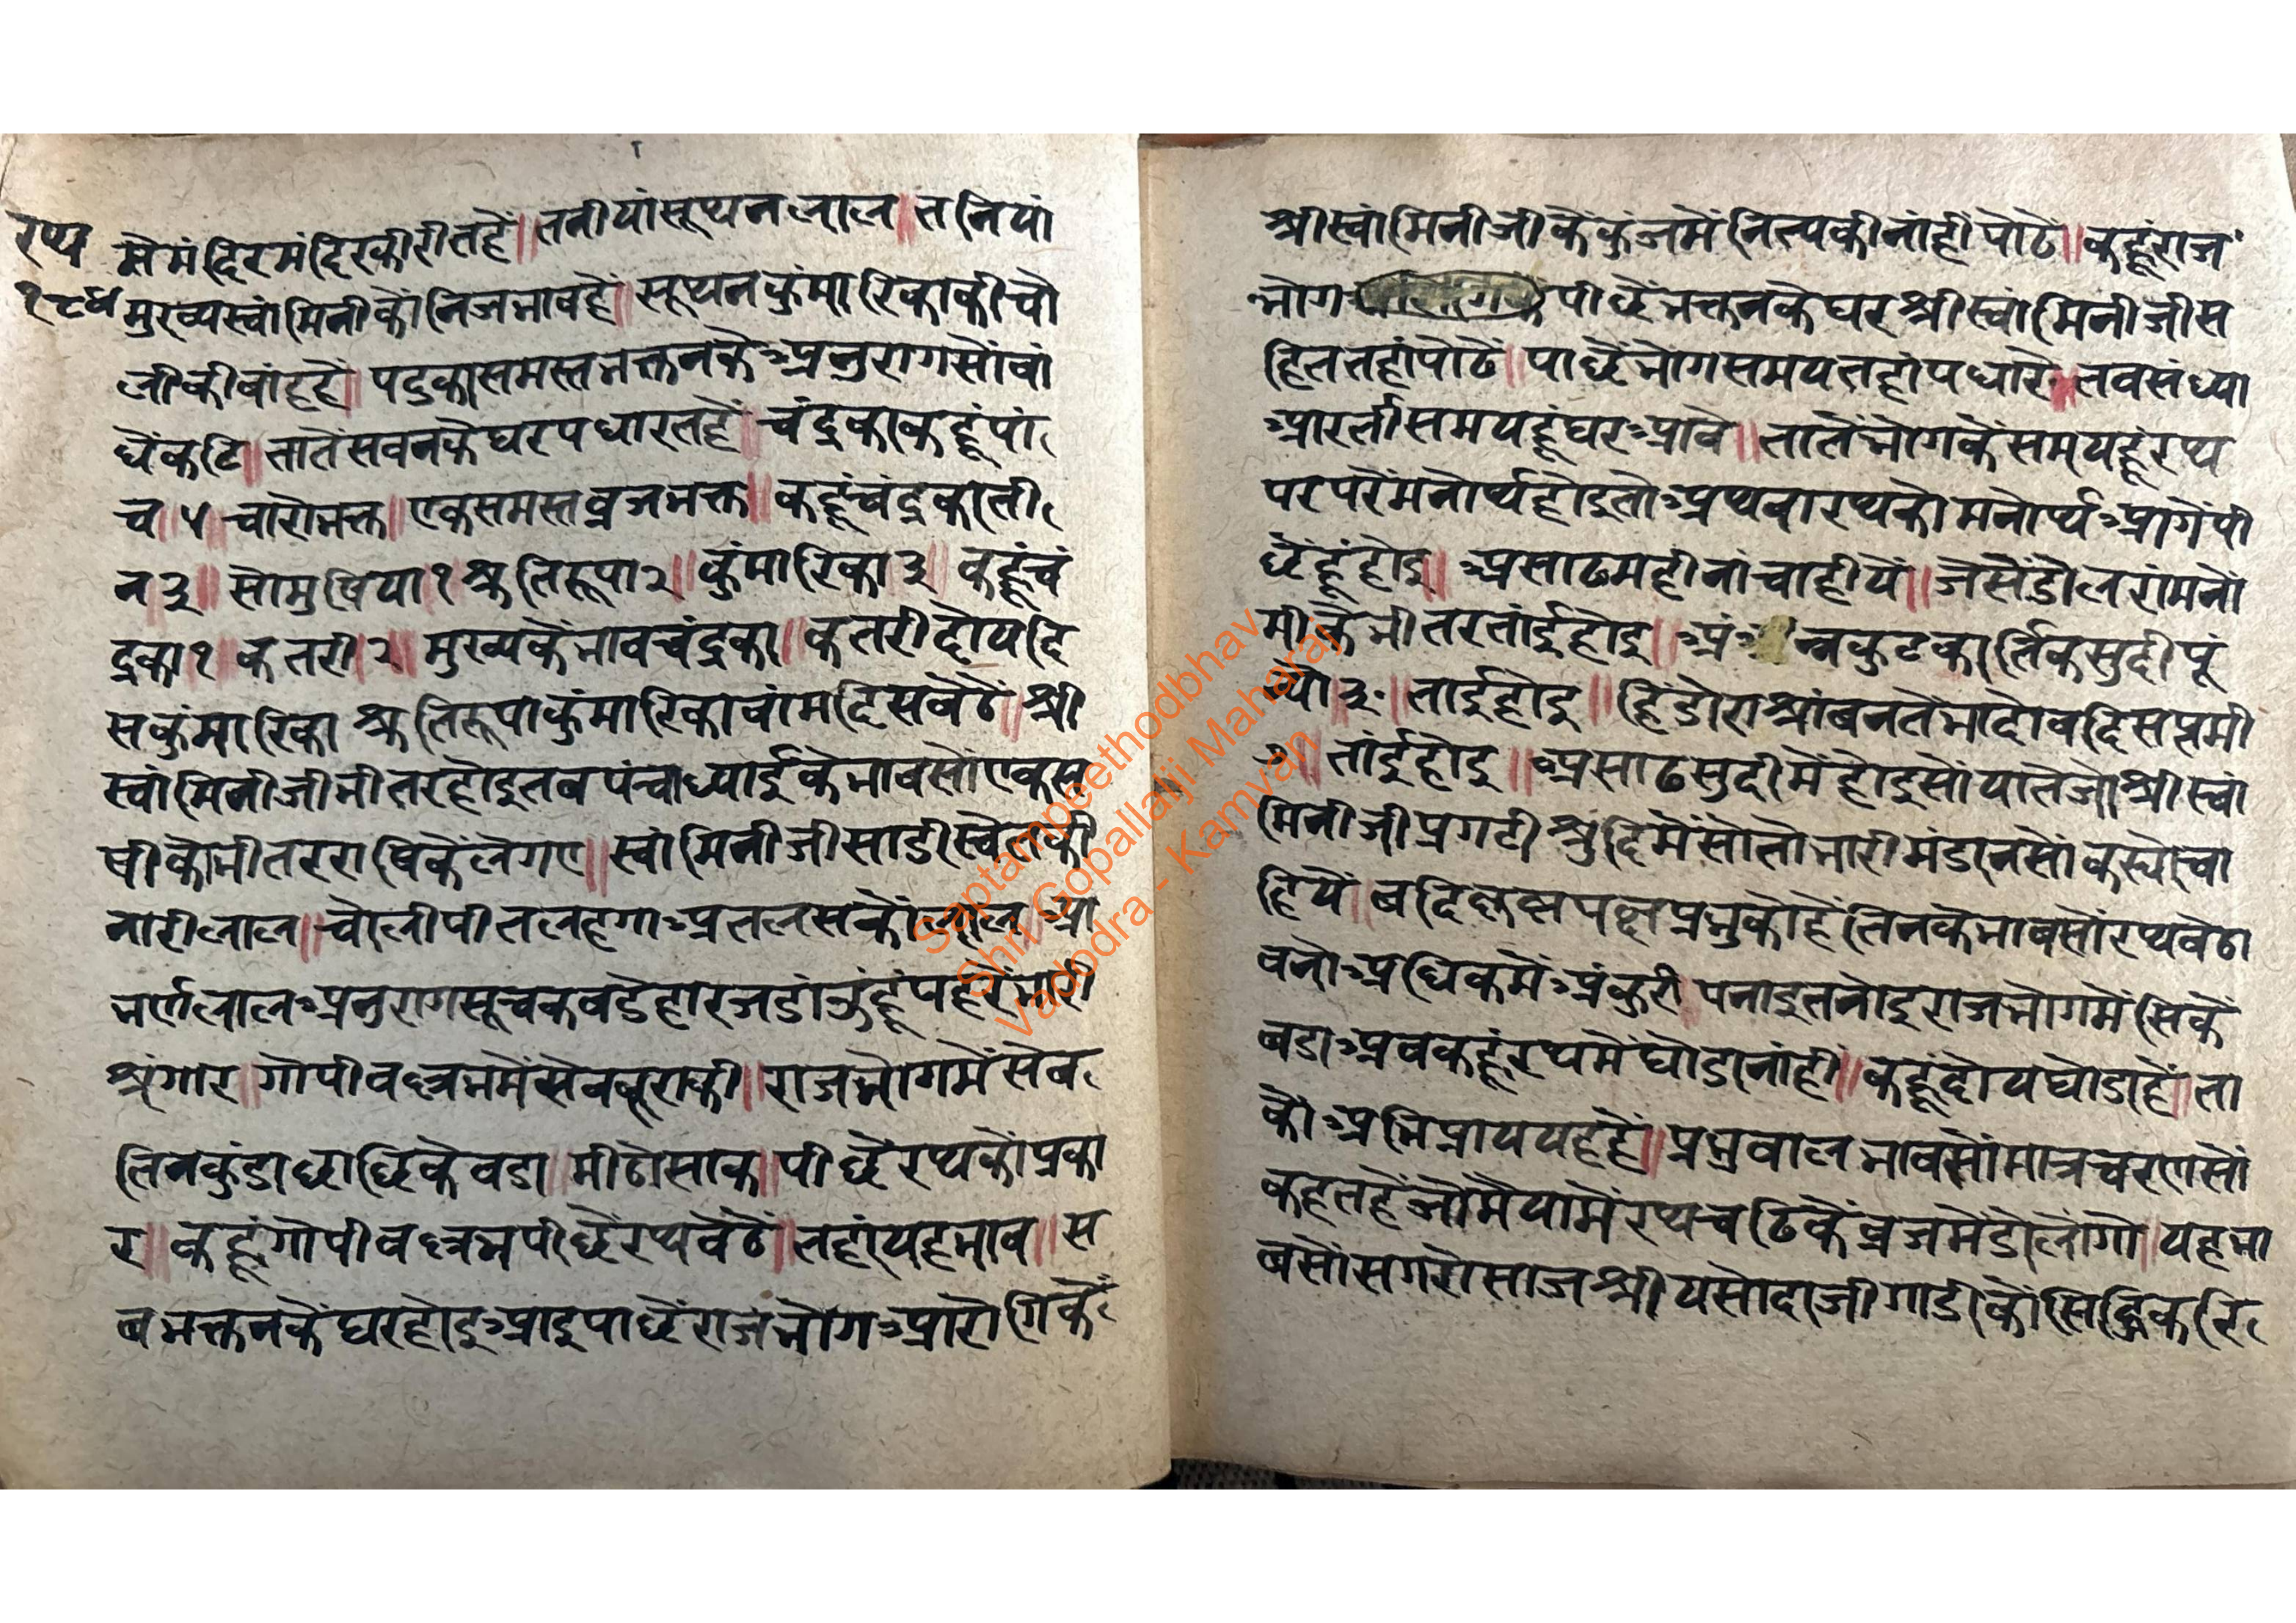 रथ
१८४
सेमंदिरमंदिरकीरीतहै॥तनीयांसूथनलाल॥तनियां
मुख्यस्वांमिनीकौंनिजभावहै॥सूथनकुंमारिकाकीचौ
लीकीबांहहै॥पटुकासमस्तभक्तनकेअनुरागसोंबां
धैंकटि॥तातेंसबनकेघरपधारतहै॥चंद्रकाकहूंपां
च॥५॥चारोभक्त॥एकसमस्तव्रजभक्त॥कहूंचंद्रकाती
न३॥सोमुषिया१श्रुतिरूपा२॥कुंमारिका३॥कहूंचं
द्रका१कतरी२॥मुख्यकेंभावचंद्रका॥कतरीदोयदि
सकुंमारिकाश्रुतिरूपाकुंमारिकावांमदिसबेठें॥श्री
स्वांमिनीजीभीतरहोइतबपंचाध्याईकेभावसोंएकस
षीकोभीतरराषिकेंलेगए॥स्वांमिनीजीसाडीस्वेतकी
नारीलाल॥चोलीपीतलहगाअतलसकोंलाल॥आ
भर्णलालअनुरागसूचकबडेहारजडांऊंहूंपहरेंभारी
श्रंगार॥गोपीवल्लभमेंसेवबूराकी॥राजभोगमेंसेब
तिनकुंडाछाछिकेवडा॥मीठोसाक॥पीछेंरथकोंप्रका
र॥कहूंगोपीवल्लभपीछेंरथबेठें॥तहांयहभाव॥स
बभक्तनकेंघरहोइआइपाछेंराजभोगआरोगिकें
श्रीस्वांमिनीजीकेंकुंजमेंनित्यकीनांहीपोढें॥कहूंराज
भोगपीछेंभक्तनकेघरश्रीस्वांमिनीजीस
हिततहांपोढें॥पाछेंभोगसमयतहांपधारे॥तबसंध्या
आरतीसमयहूंघरआवे॥तातेंभोगकेंसमयहूंरथ
परपरेंमनोर्थहोइतोअथवारथकोमनोर्थआगेंपी
छेंहूंहोइ॥असाढमहींनांचाहीयें॥जेसेंडोलरांमनों
मीकेभीतरतांईहोइ॥अंन्नकुटकार्तिकसुदीपूं
न्यो३॥तांईहोइ॥हिंडोराश्रांबनतेंभादोंबदिसप्तमी
७॥तांईहोइ॥असाढसुदीमेंहोइसोयातेजोश्रीस्वां
मिनीजीप्रगटीश्रुदिमेंसोतोभारीमंडानसोंकर्योचा
हियें॥बदिकृष्णपक्षप्रभुकोहैंतिनकेभावसोंरथबेठा
वनोअधिकमेंअंकुरीपनाइतनोइराजभोगमेंसिकें
बडाअबकहूंरथमेंघोडानांहीं॥कहूंदोयघोडाहैं॥ता
कोअभिप्राययहहै॥प्रभुबालभावसोंमात्रचरणसों
कहतहैंजोमैयामेंरथचढिकेंव्रजमेंडोलोंगो॥यहभा
बसोंसगरोसाजश्रीयसोदाजीगाडीकोंसिद्धिकरि
Saptampeethodbhav
Shri Gopallalji Maharaj
Vadodra - Kamvan